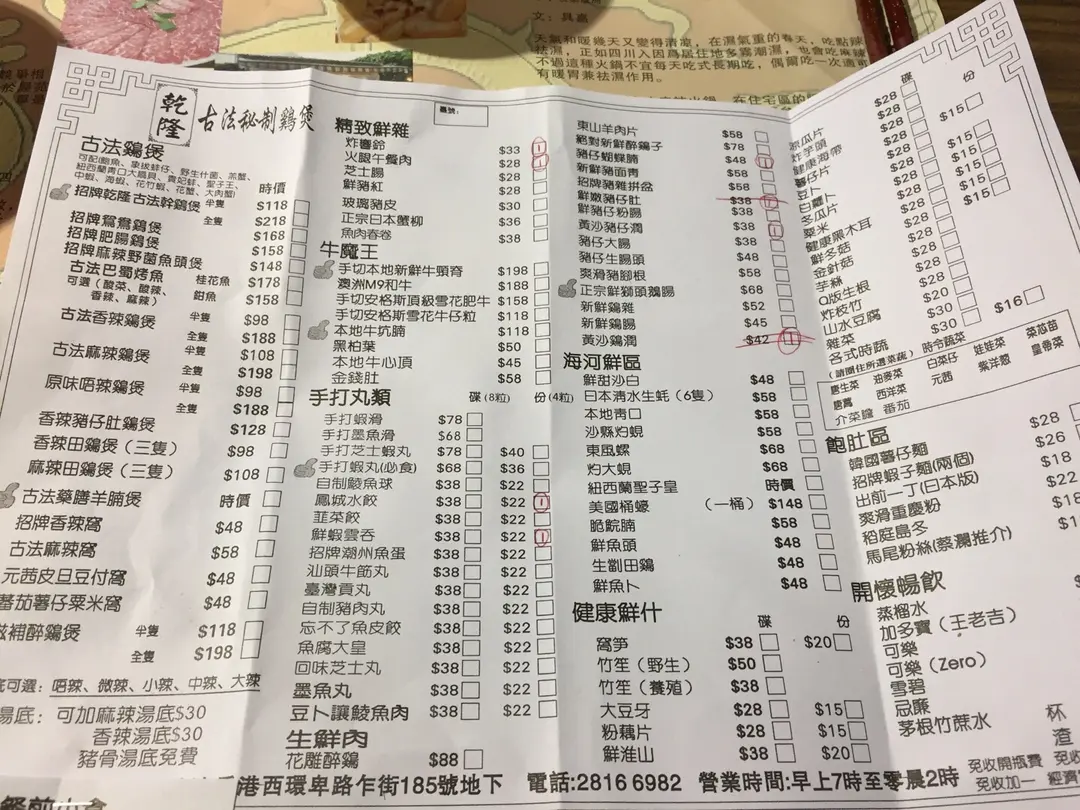 文：具嘉
天氣和暖幾天又變得清涼，在濕氣重的春天，吃點辣
祛濕，正如四川人因爲居住地多霧潮濕，也會吃麻辣
不過這種火鍋不宜每天吃式長期吃，偶爾吃一次適
有暖胃兼祛濕作用。
乾隆 古法秘制鷄煲
古法鷄煲
時價
招牌乾隆古法幹鷄煲 半隻 $118
全隻 $218
招牌鴛鴦鷄煲 $168
招牌肥腸鷄煲 $158
招牌麻辣野菌魚頭煲 $148
古法巴蜀烤魚 桂花魚 $178
可選（酸菜、酸辣、香辣、麻辣） 鉗魚 $158
古法香辣鷄煲 半隻 $98
全隻 $188
古法麻辣鷄煲 半隻 $108
全隻 $198
原味唔辣鷄煲 半隻 $98
全隻 $188
香辣豬仔肚鷄煲 $128
香辣田鷄煲（三隻） $98
麻辣田鷄煲（三隻） $108
古法藥膳羊腩煲 時價
招牌香辣窩 $48
古法麻辣窩 $58
元茜皮旦豆付窩 $48
蕃茄薯仔粟米窩 $48
滋補醉鷄煲 半隻 $118
全隻 $198
底可選：唔辣、微辣、小辣、中辣、大辣
湯底：可加麻辣湯底$30
香辣湯底$30
豬骨湯底免費
臺號：
精致鮮雜
炸響鈴 $33
火腿牛餐肉 $28
芝士腸 $28
鮮豬紅 $28
玻璃豬皮 $30
正宗日本蟹柳 $36
魚肉春卷 $38
牛魔王
手切本地新鮮牛頸脊 $198
澳洲M9和牛 $188
手切安格斯頂級雪花肥牛 $158
手切安格斯雪花牛仔粒 $118
本地牛坑腩 $118
黑柏葉 $50
本地牛心頂 $45
金錢肚 $58
手打丸類 碟(8粒) 份(4粒)
手打蝦滑 $78
手打墨魚滑 $68
手打芝士蝦丸 $78 $40
手打蝦丸(必食) $68 $36
自制鯪魚球 $38 $22
鳳城水餃 $38 $22
韮菜餃 $38 $22
鮮蝦雲吞 $38 $22
招牌潮州魚蛋 $38 $22
汕頭牛筋丸 $38 $22
臺灣貢丸 $38 $22
自制豬肉丸 $38 $22
忘不了魚皮餃 $38 $22
魚腐大皇 $38 $22
回味芝士丸 $38 $22
墨魚丸 $38 $22
豆卜讓鯪魚肉 $38 $22
生鮮肉
花雕醉鷄 $88
東山羊肉片 $58
絕對新鮮醉鷄子 $78
豬仔蝴蝶腩 $48
新鮮豬面青 $58
招牌豬雜拼盆 $58
鮮嫩豬仔肚 $38
鮮豬仔粉腸 $38
黃沙豬仔潤 $38
豬仔大腸 $38
豬仔生腸頭 $48
爽滑豬腳根 $58
正宗鮮獅頭鵝腸 $68
新鮮鷄雜 $52
新鮮鷄腸 $45
黃沙鷄潤 $42
海河鮮區
鮮甜沙白 $48
日本清水生蚝（6隻） $58
本地青口 $58
沙縣灼蜆 $58
東風螺 $68
灼大蜆 $68
紐西蘭聖子皇 時價
美國桶蠔 （一桶） $148
脆鯇腩 $58
鮮魚頭 $48
生劏田鷄 $48
鮮魚卜 $48
健康鮮什 碟 份
窩笋 $38 $20
竹笙（野生） $50
竹笙（養殖） $38
大豆牙 $28 $15
粉藕片 $28 $15
鮮淮山 $38 $20
碟 份
炸芋頭
健康海帶
薯仔片
豆卜
白蘿卜
冬瓜片
粟米
健康黑木耳
鮮冬菇
金針菇
芋絲
Q版生根
炸枝竹
山水豆腐
雜菜
各式時蔬 $16
（請關住所選菜蔬）
時令蔬菜
唐生菜 油麥菜 白菜仔 娃娃菜 菜芯苗
唐蒿 西洋菜 元茜 紫洋蔥 皇帝菜
介菜膽 番茄
飽肚區
韓國薯仔麵 $28
招牌蝦子麵(兩個) $26
出前一丁(日本版) $18
爽滑重慶粉 $22
稻庭島冬
馬尾粉絲(蔡瀾推介)
開懷暢飲
蒸榴水
加多寶（王老吉）
可樂
可樂（Zero）
雪碧
忌廉
茅根竹蔗水
港西環卑路乍街185號地下 電話:2816 6982 營業時間:早上7時至零晨2時
免收開瓶費
免收加一